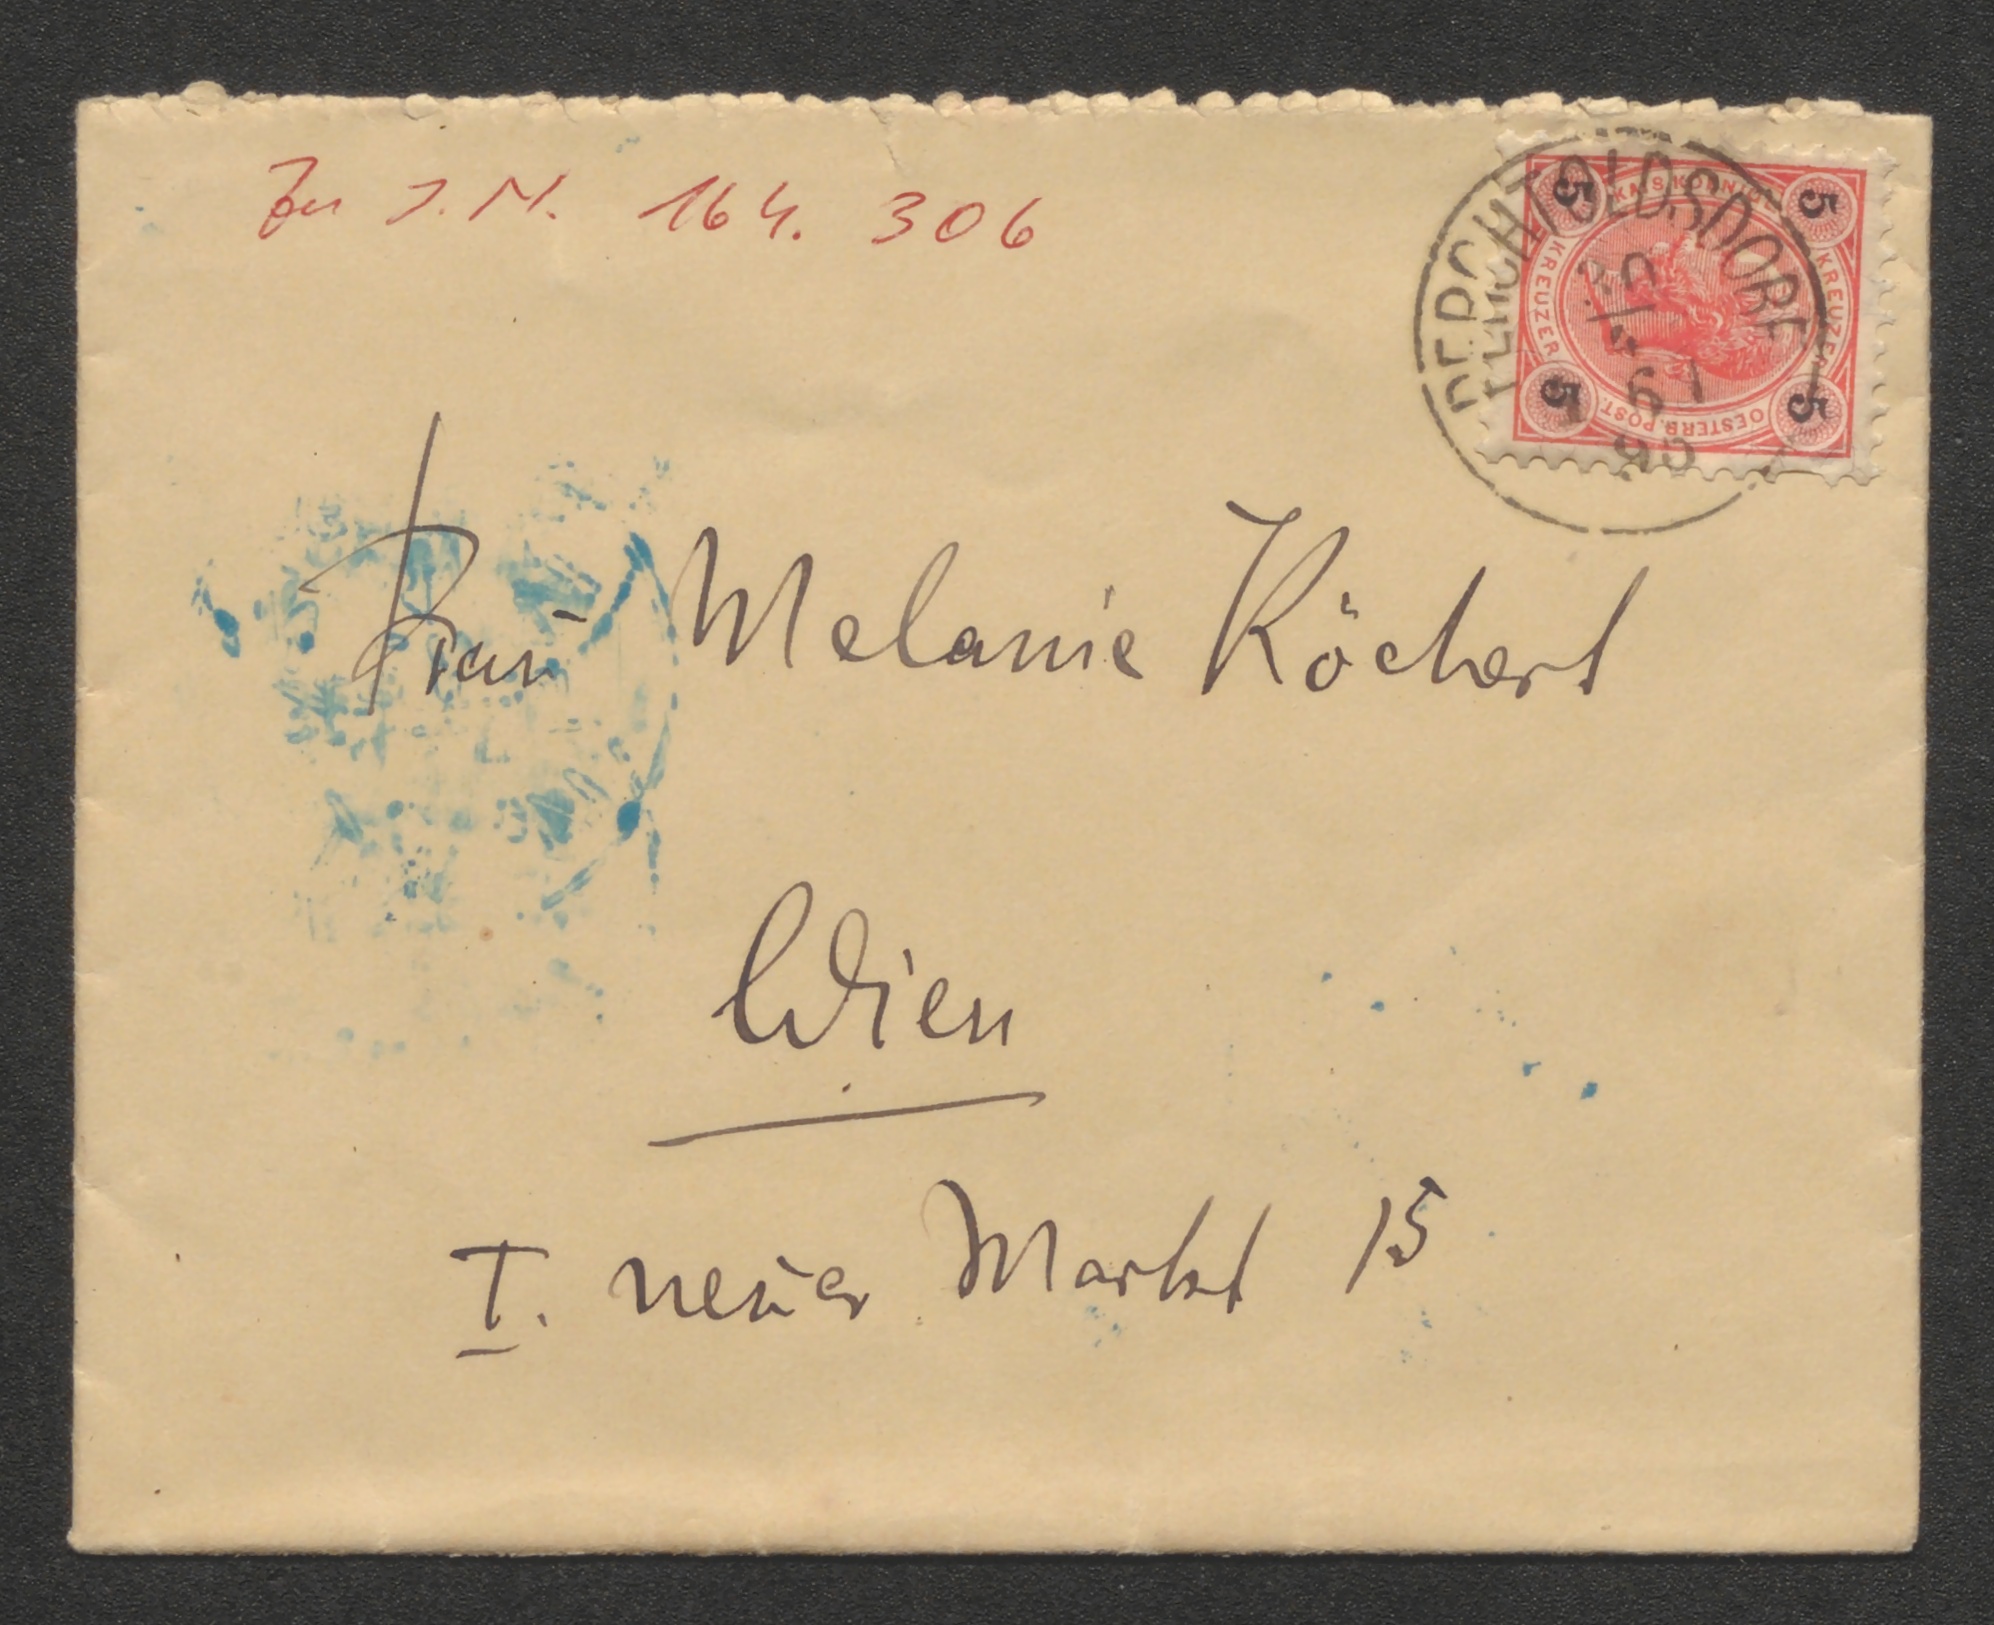 Zu I.N. 164.306
PERCHTOLDSDORF
KAIS. KÖNIGL.
5 5 5 5
KREUZER KREUZER
OESTERR. POST.
95
Frau Melanie Köchert
Wien
I. neuer Markt 15